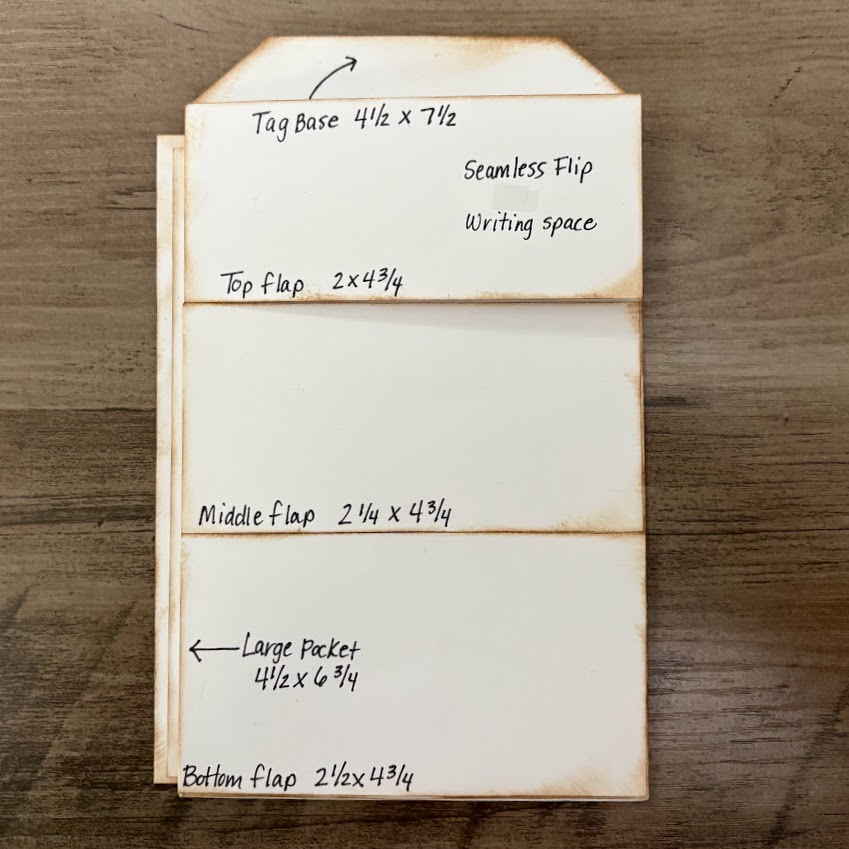 Tag Base 4 1/2 x 7 1/2
Seamless Flip
Writing space
Top flap 2 x 4 3/4
Middle flap 2 1/4 x 4 3/4
Large Pocket
4 1/2 x 6 3/4
Bottom flap 2 1/2 x 4 3/4